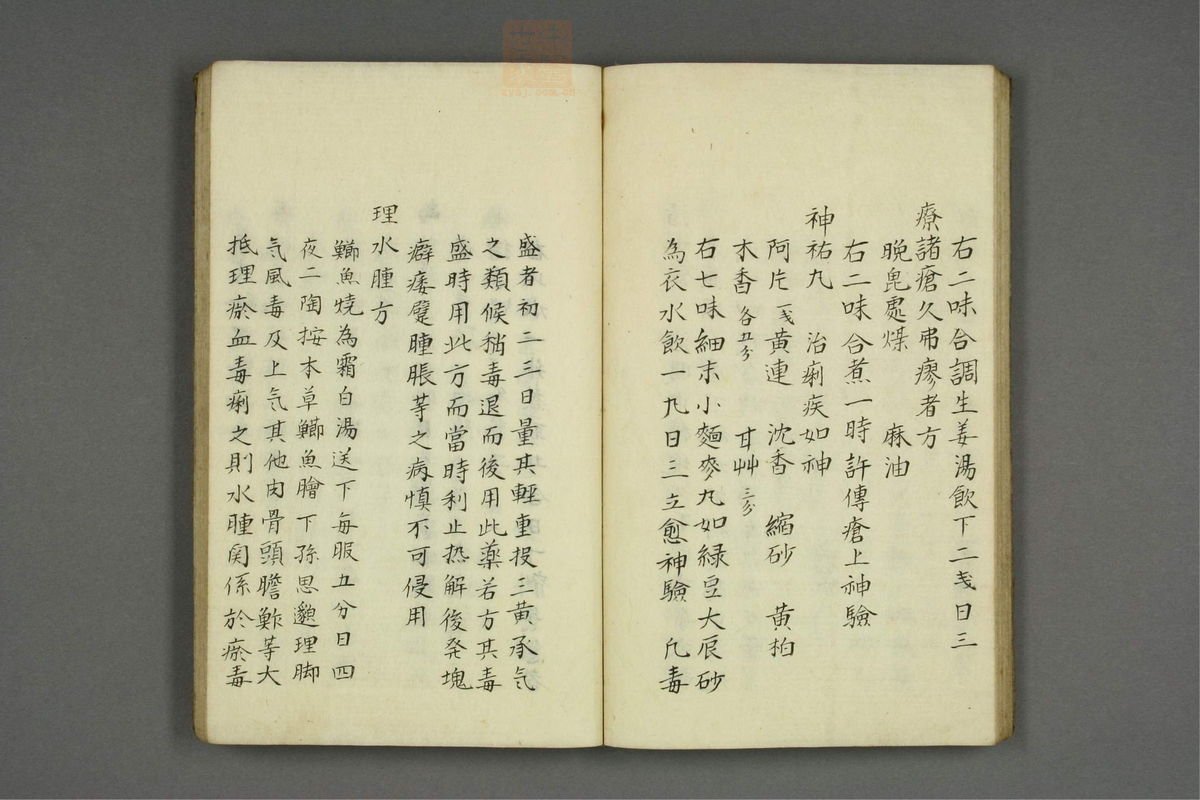 右二味合調生姜湯飲下二戔日三
療諸瘡久弗瘳者方
晩皂處燥 麻油
右二味合煮一時許傳瘡上神驗
神祐九 治痢疾如神
阿片一戔 黄連 沈香 縮砂 黄柏
木香各五分 甘艸三分
右七味細末小麵麥九如緑豆大辰砂
為衣水飲一九日三立愈神驗 凡毒
盛者初二三日量其輕重投三黄承气
之類候稍毒退而後用此藥若方其毒
盛時用此方而當時利止热解後発塊
癖痿躄腫脹䒭之病慎不可侵用
理水腫方
鰤魚燒為霜白湯送下每服五分日四
夜二陶按本草鰤魚膾下孫思邈理脚
气風毒及上气其他肉骨頭膽鮓等大
抵理瘀血毒痢之則水腫関係於瘀毒